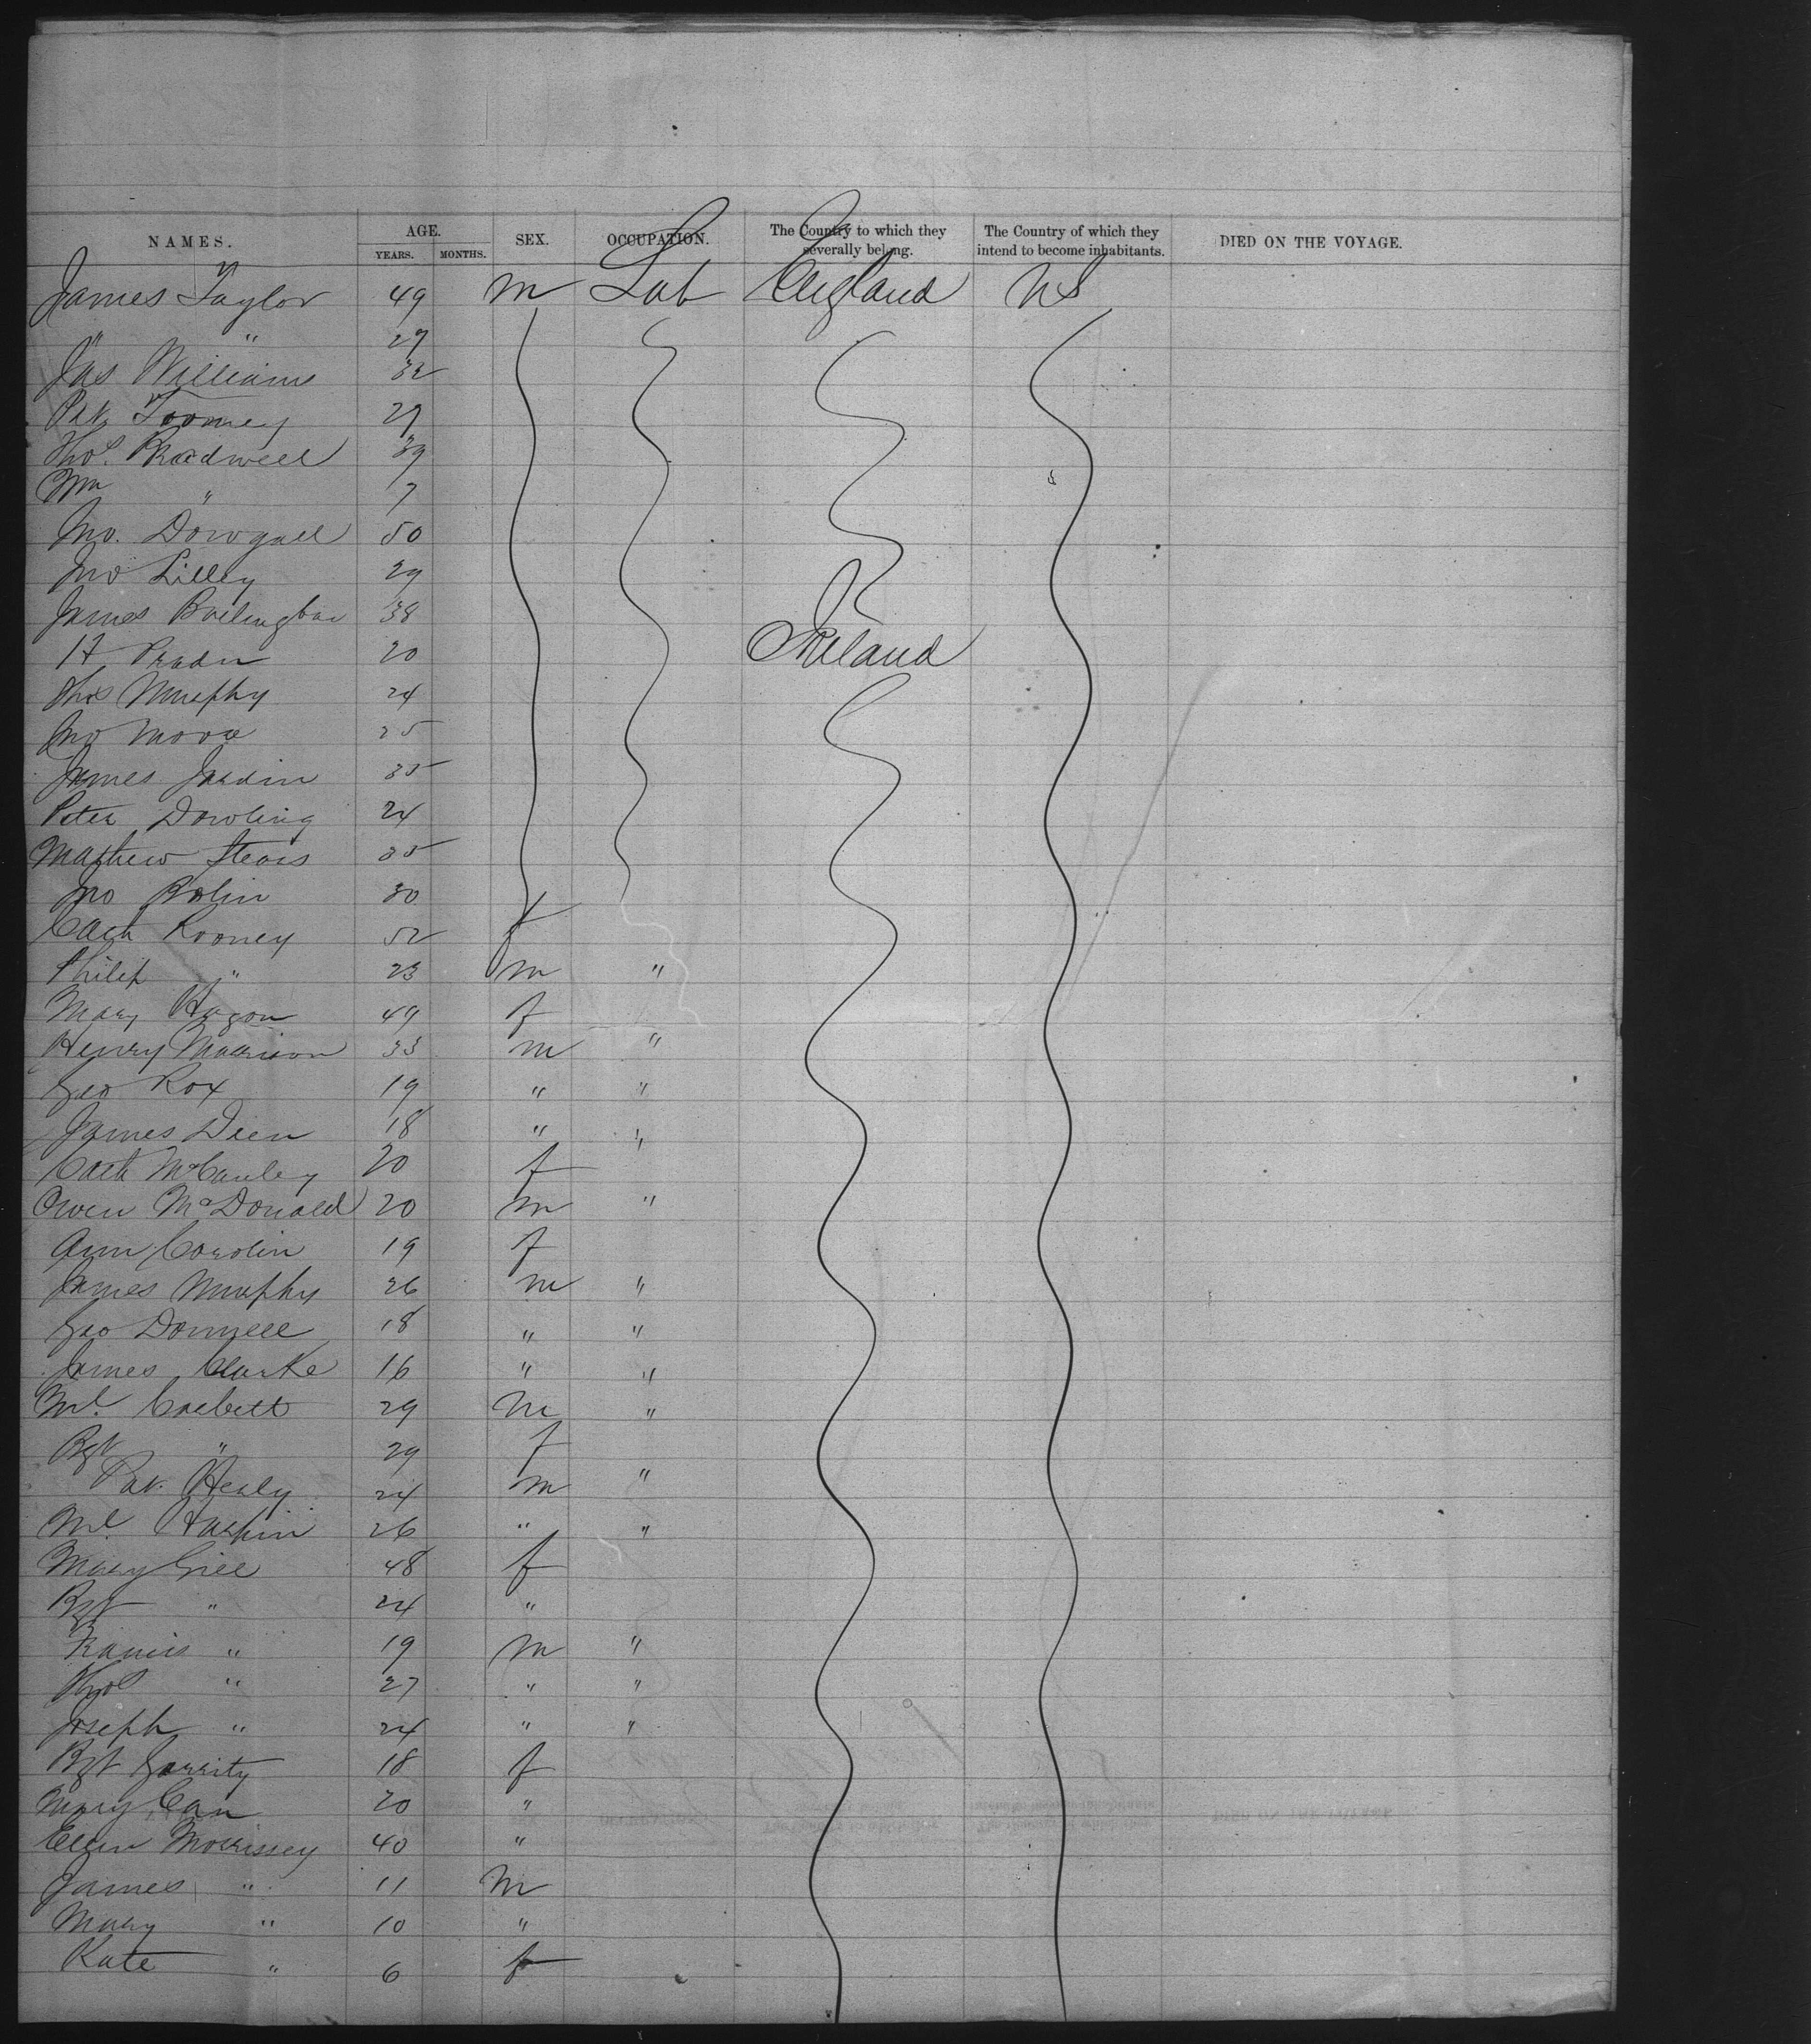 NAMES. AGE. YEARS. MONTHS. SEX. OCCUPATION. The Country to which they severally belong. The Country of which they intend to become inhabitants. DIED ON THE VOYAGE.
James Taylor 49 m Lab England US
" " 29
Jas Williams 32
Pat Toomey 29
Thos. Bradwell 39
Wm " 7
Jno. Dowgall 50
Jno Lilley 29
James 38
H 20 Ireland
Thos Murphy 24
Jno Moore 25
James Jardin 35
Peter Dowling 24
Mathew 35
Jno Bolin 30
Cath Rooney 52 f
Philip " 23 m "
Mary Hagon 49 f
Henry Morrison 33 m "
Geo Rox 19 " "
James Deen 18 " "
Cath McCauley 20 f
Owen McDonald 20 m "
Ann Carolin 19 f
James Murphy 26 m "
Geo Donnell 18 " "
James Clarke 16 " "
Ml. Corbett 29 m "
Bgt " 29 f
Pat. Healy 24 m "
Ml 26 " "
Mary Gill 48 f
Bgt " 24 "
Francis " 19 m "
Thos " 27 " "
Joseph " 24 " "
Bgt Garrity 18 f
Mary 20 "
Ellen Morrissey 40 "
James " 11 m
Mary " 10 "
Kate " 6 f